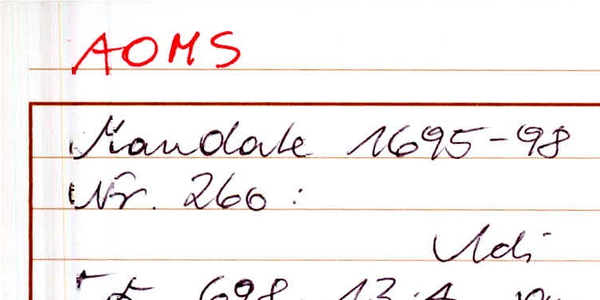 AOMS
Mandate 1695-98
Nr. 260:
Udi